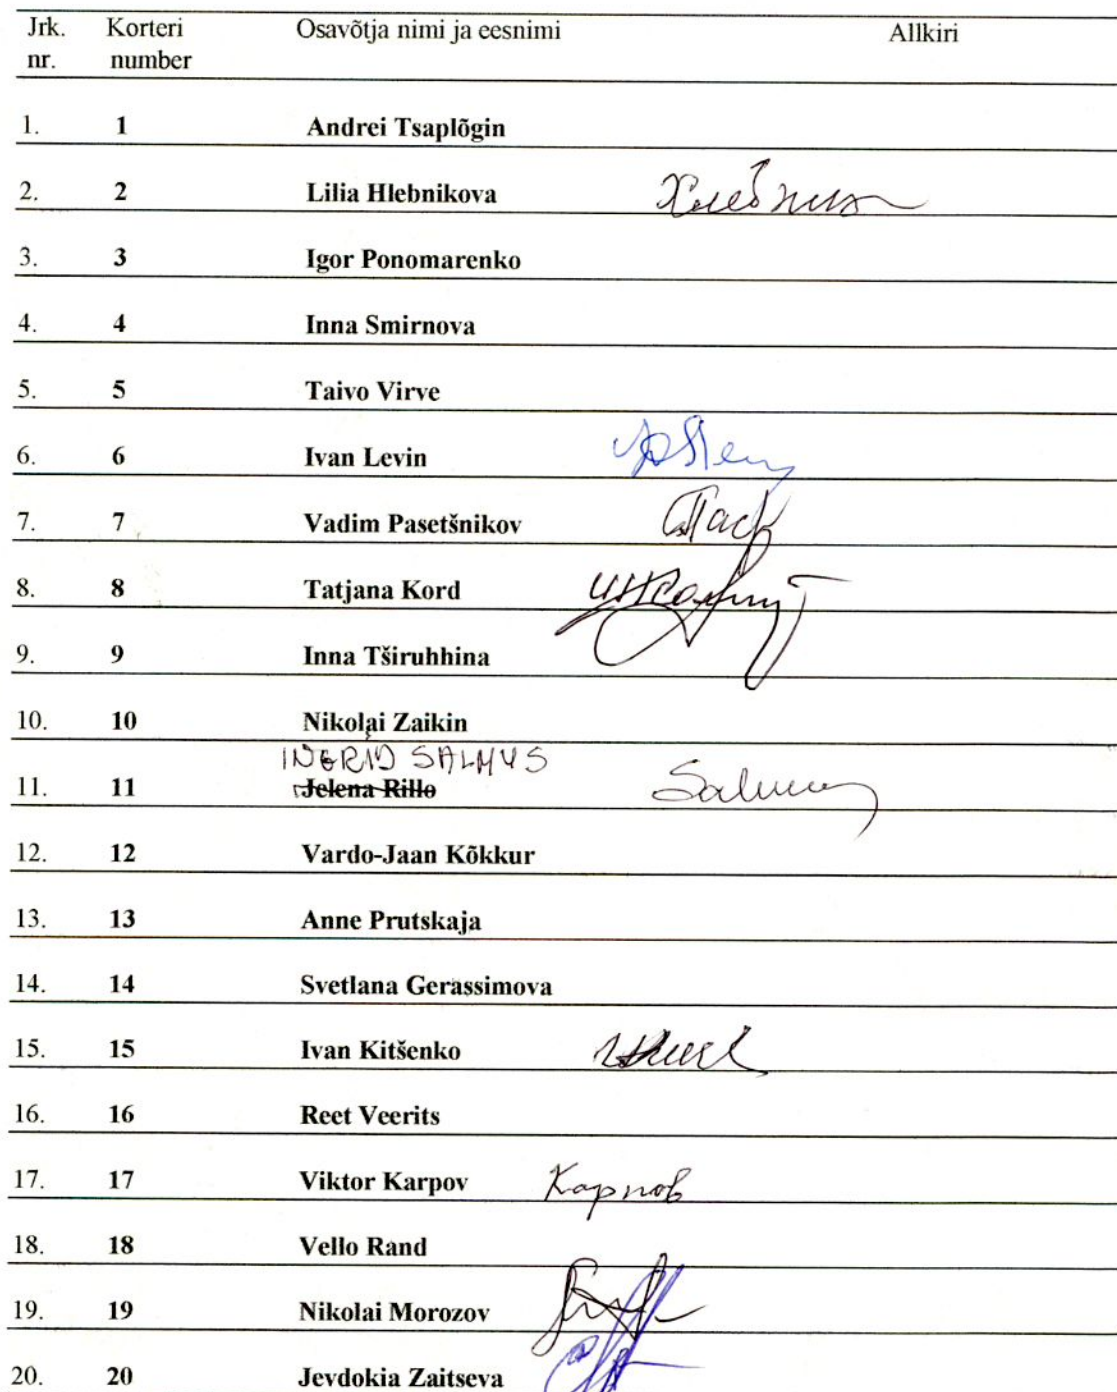 Jrk. Korteri Osavõtja nimi ja eesnimi Allkiri
nr. number
1. 1 Andrei Tsaplõgin
2. 2 Lilia Hlebnikova
3. 3 Igor Ponomarenko
4. 4 Inna Smirnova
5. 5 Taivo Virve
6. 6 Ivan Levin
7. 7 Vadim Pasetšnikov
8. 8 Tatjana Kord
9. 9 Inna Tširuhhina
10. 10 Nikolai Zaikin
INGRID SALMUS
11. 11 Jelena Rillo
12. 12 Vardo-Jaan Kõkkur
13. 13 Anne Prutskaja
14. 14 Svetlana Gerassimova
15. 15 Ivan Kitšenko
16. 16 Reet Veerits
17. 17 Viktor Karpov Карпов
18. 18 Vello Rand
19. 19 Nikolai Morozov
20. 20 Jevdokia Zaitseva